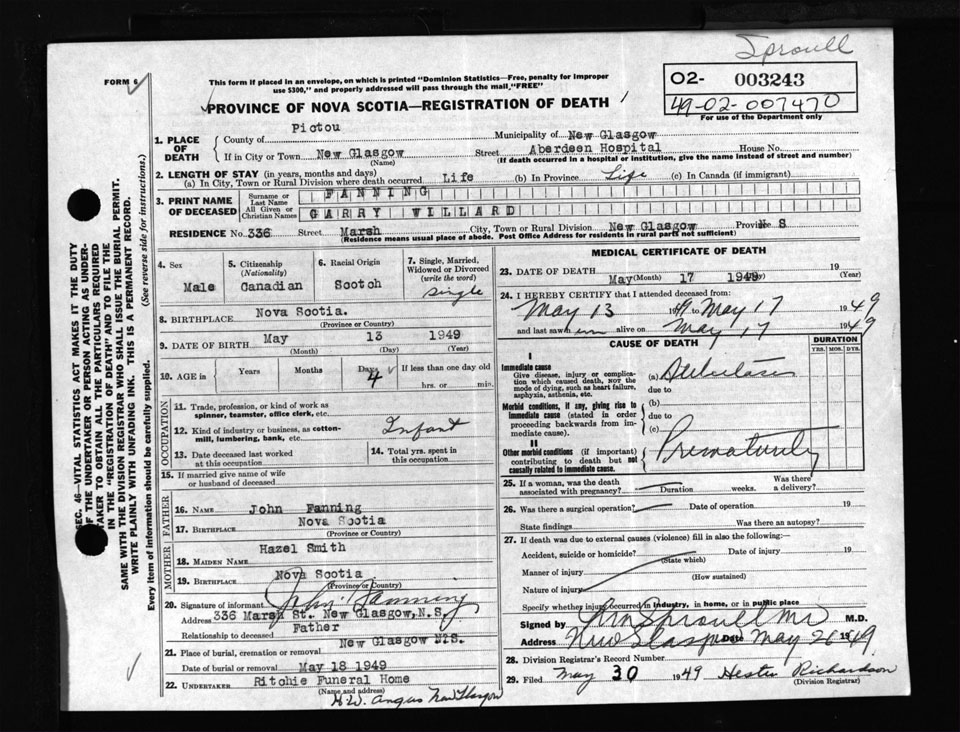 Sproull
FORM 6
This form if placed in an envelope, on which is printed "Dominion Statistics—Free, penalty for improper
use $300," and properly addressed will pass through the mail, "FREE"
02- 003243
49-02-007470
For use of the Department only
PROVINCE OF NOVA SCOTIA—REGISTRATION OF DEATH
1. PLACE OF DEATH
County of Pictou Municipality of New Glasgow
If in City or Town New Glasgow Street Aberdeen Hospital House No.
(Name) (If death occurred in a hospital or institution, give the name instead of street and number)
2. LENGTH OF STAY (in years, months and days)
(a) In City, Town or Rural Division where death occurred Life (b) In Province Life (c) In Canada (if immigrant)
3. PRINT NAME OF DECEASED
Surname or Last Name FANNING
All Given or Christian Names GARRY WILLARD
RESIDENCE No. 336 Street Marsh City, Town or Rural Division New Glasgow Province N S
(Residence means usual place of abode. Post Office Address for residents in rural parts not sufficient)
4. Sex Male
5. Citizenship (Nationality) Canadian
6. Racial Origin Scotch
7. Single, Married, Widowed or Divorced (write the word) single
8. BIRTHPLACE Nova Scotia.
(Province or Country)
9. DATE OF BIRTH May 13 1949
(Month) (Day) (Year)
10. AGE in Years Months Days 4 If less than one day old
hrs. or min.
OCCUPATION
11. Trade, profession, or kind of work as spinner, teamster, office clerk, etc.
12. Kind of industry or business, as cotton-mill, lumbering, bank, etc. Infant
13. Date deceased last worked at this occupation
14. Total yrs. spent in this occupation
15. If married give name of wife or husband of deceased
FATHER
16. Name John Fanning
17. Birthplace Nova Scotia
(Province or Country)
MOTHER
18. MAIDEN NAME Hazel Smith
19. BIRTHPLACE Nova Scotia
(Province or Country)
20. Signature of informant John Fanning
Address 336 Marsh St. New Glasgow, N.S.
Relationship to deceased Father
21. Place of burial, cremation or removal New Glasgow N.S.
Date of burial or removal May 18 1949
22. UNDERTAKER Ritchie Funeral Home
(Name and address)
H.W. Angus New Glasgow
MEDICAL CERTIFICATE OF DEATH
23. DATE OF DEATH May 17 1949 19
(Month) (Day) (Year)
24. I HEREBY CERTIFY that I attended deceased from:
May 13 1949 to May 17 1949
and last saw him alive on May 17 1949
CAUSE OF DEATH
DURATION
YRS. MOS. DYS.
I
Immediate cause
Give disease, injury or complication which caused death, NOT the mode of dying, such as heart failure, asphyxia, asthenia, etc.
(a) Atelectasis
due to
Morbid conditions, if any, giving rise to immediate cause (stated in order proceeding backwards from immediate cause).
(b)
due to
(c)
II
Other morbid conditions (if important) contributing to death but not causally related to immediate cause.
Prematurity
25. If a woman, was the death associated with pregnancy? Duration weeks. Was there a delivery?
26. Was there a surgical operation? Date of operation 19
State findings Was there an autopsy?
27. If death was due to external causes (violence) fill in also the following:
Accident, suicide or homicide? Date of injury 19
(State which)
Manner of injury
(How sustained)
Nature of injury
Specify whether injury occurred in industry, in home, or in public place
Signed by Sproull M.D.
Address New Glasgow Date May 26 1949
28. Division Registrar's Record Number
29. Filed May 30 1949 Hester Richardson
(Division Registrar)
SEC. 46—VITAL STATISTICS ACT MAKES IT THE DUTY
OF THE UNDERTAKER OR PERSON ACTING AS UNDER-
TAKER TO OBTAIN ALL THE PARTICULARS REQUIRED
IN THE "REGISTRATION OF DEATH" AND TO FILE THE
SAME WITH THE DIVISION REGISTRAR WHO SHALL ISSUE THE BURIAL PERMIT.
WRITE PLAINLY WITH UNFADING INK. THIS IS A PERMANENT RECORD.
Every item of information should be carefully supplied. (See reverse side for instructions.)